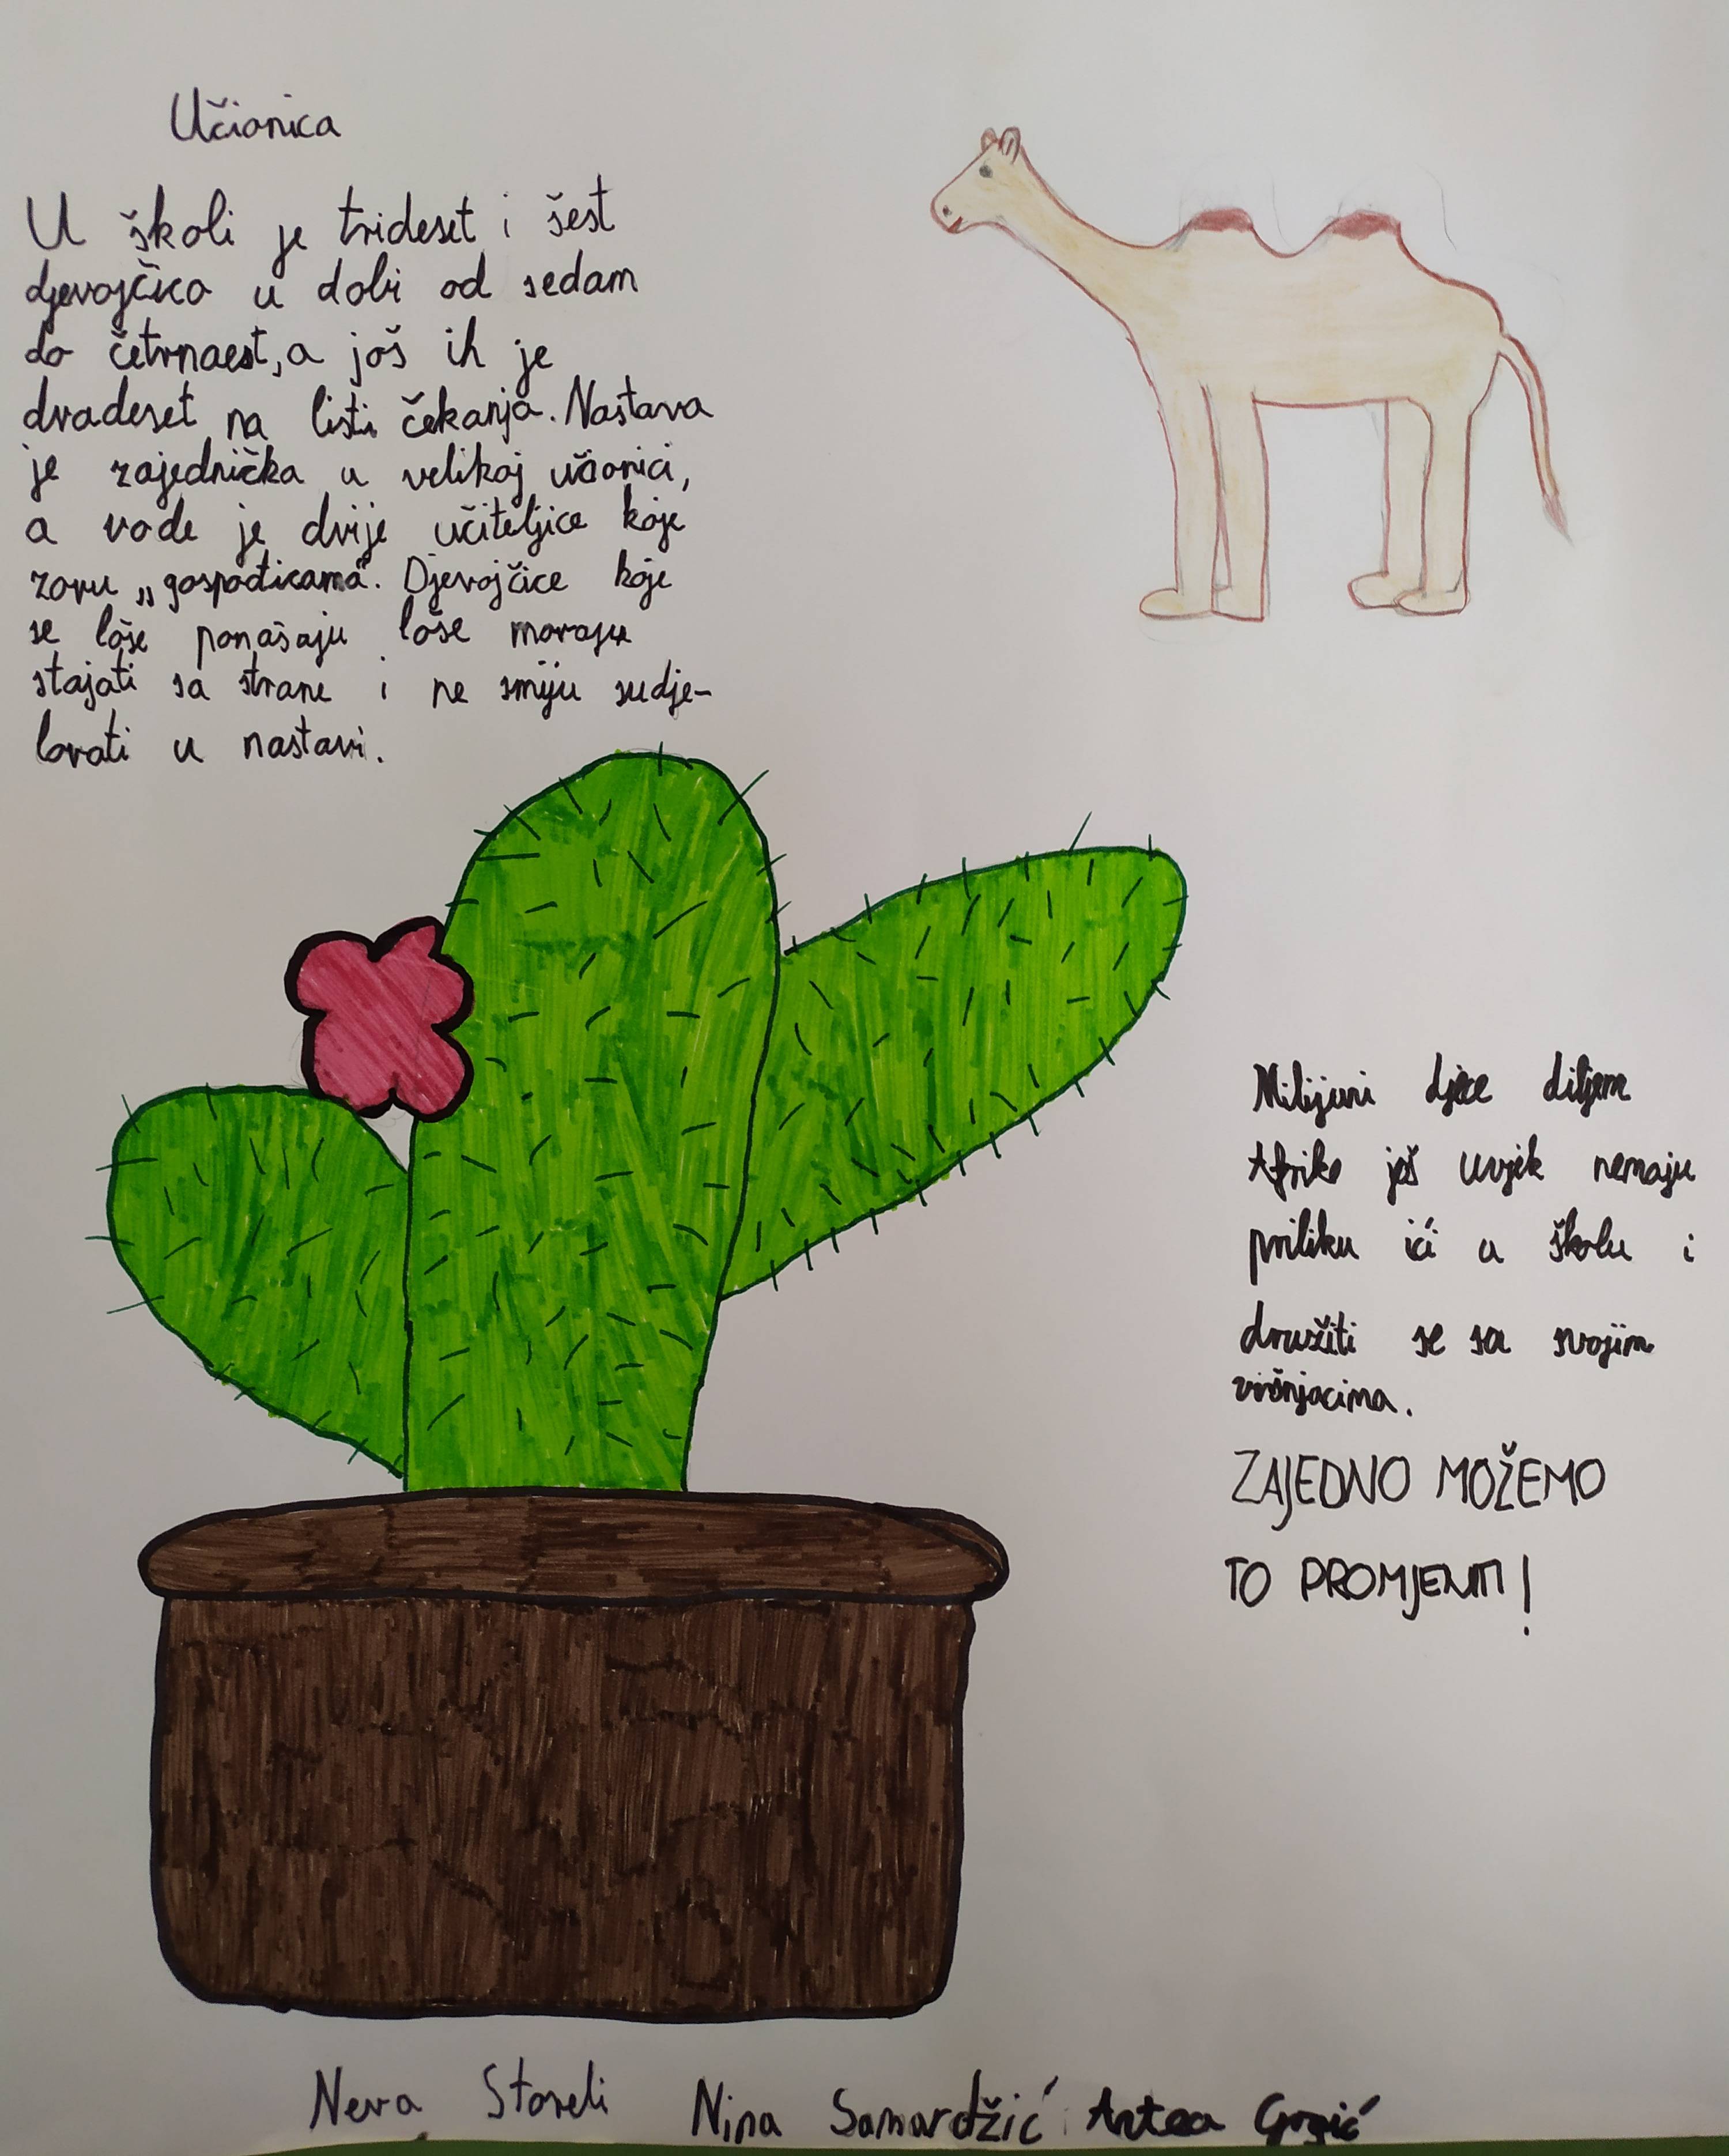 Učionica
U školi je trideset i šest
djevojčica u dobi od sedam
do četrnaest, a još ih je
dvadeset na listi čekanja. Nastava
je zajednička u velikoj učionici,
a vode je dvije učiteljice koje
zovu „gospođicama“. Djevojčice koje
se loše ponašaju loše moraju
stajati sa strane i ne smiju sudje-
lovati u nastavi.
Milijuni djece diljem
Afrike još uvijek nemaju
priliku ići u školu i
družiti se sa svojim
vršnjacima.
ZAJEDNO MOŽEMO
TO PROMJENITI!
Neva Nina Samardžić Antea